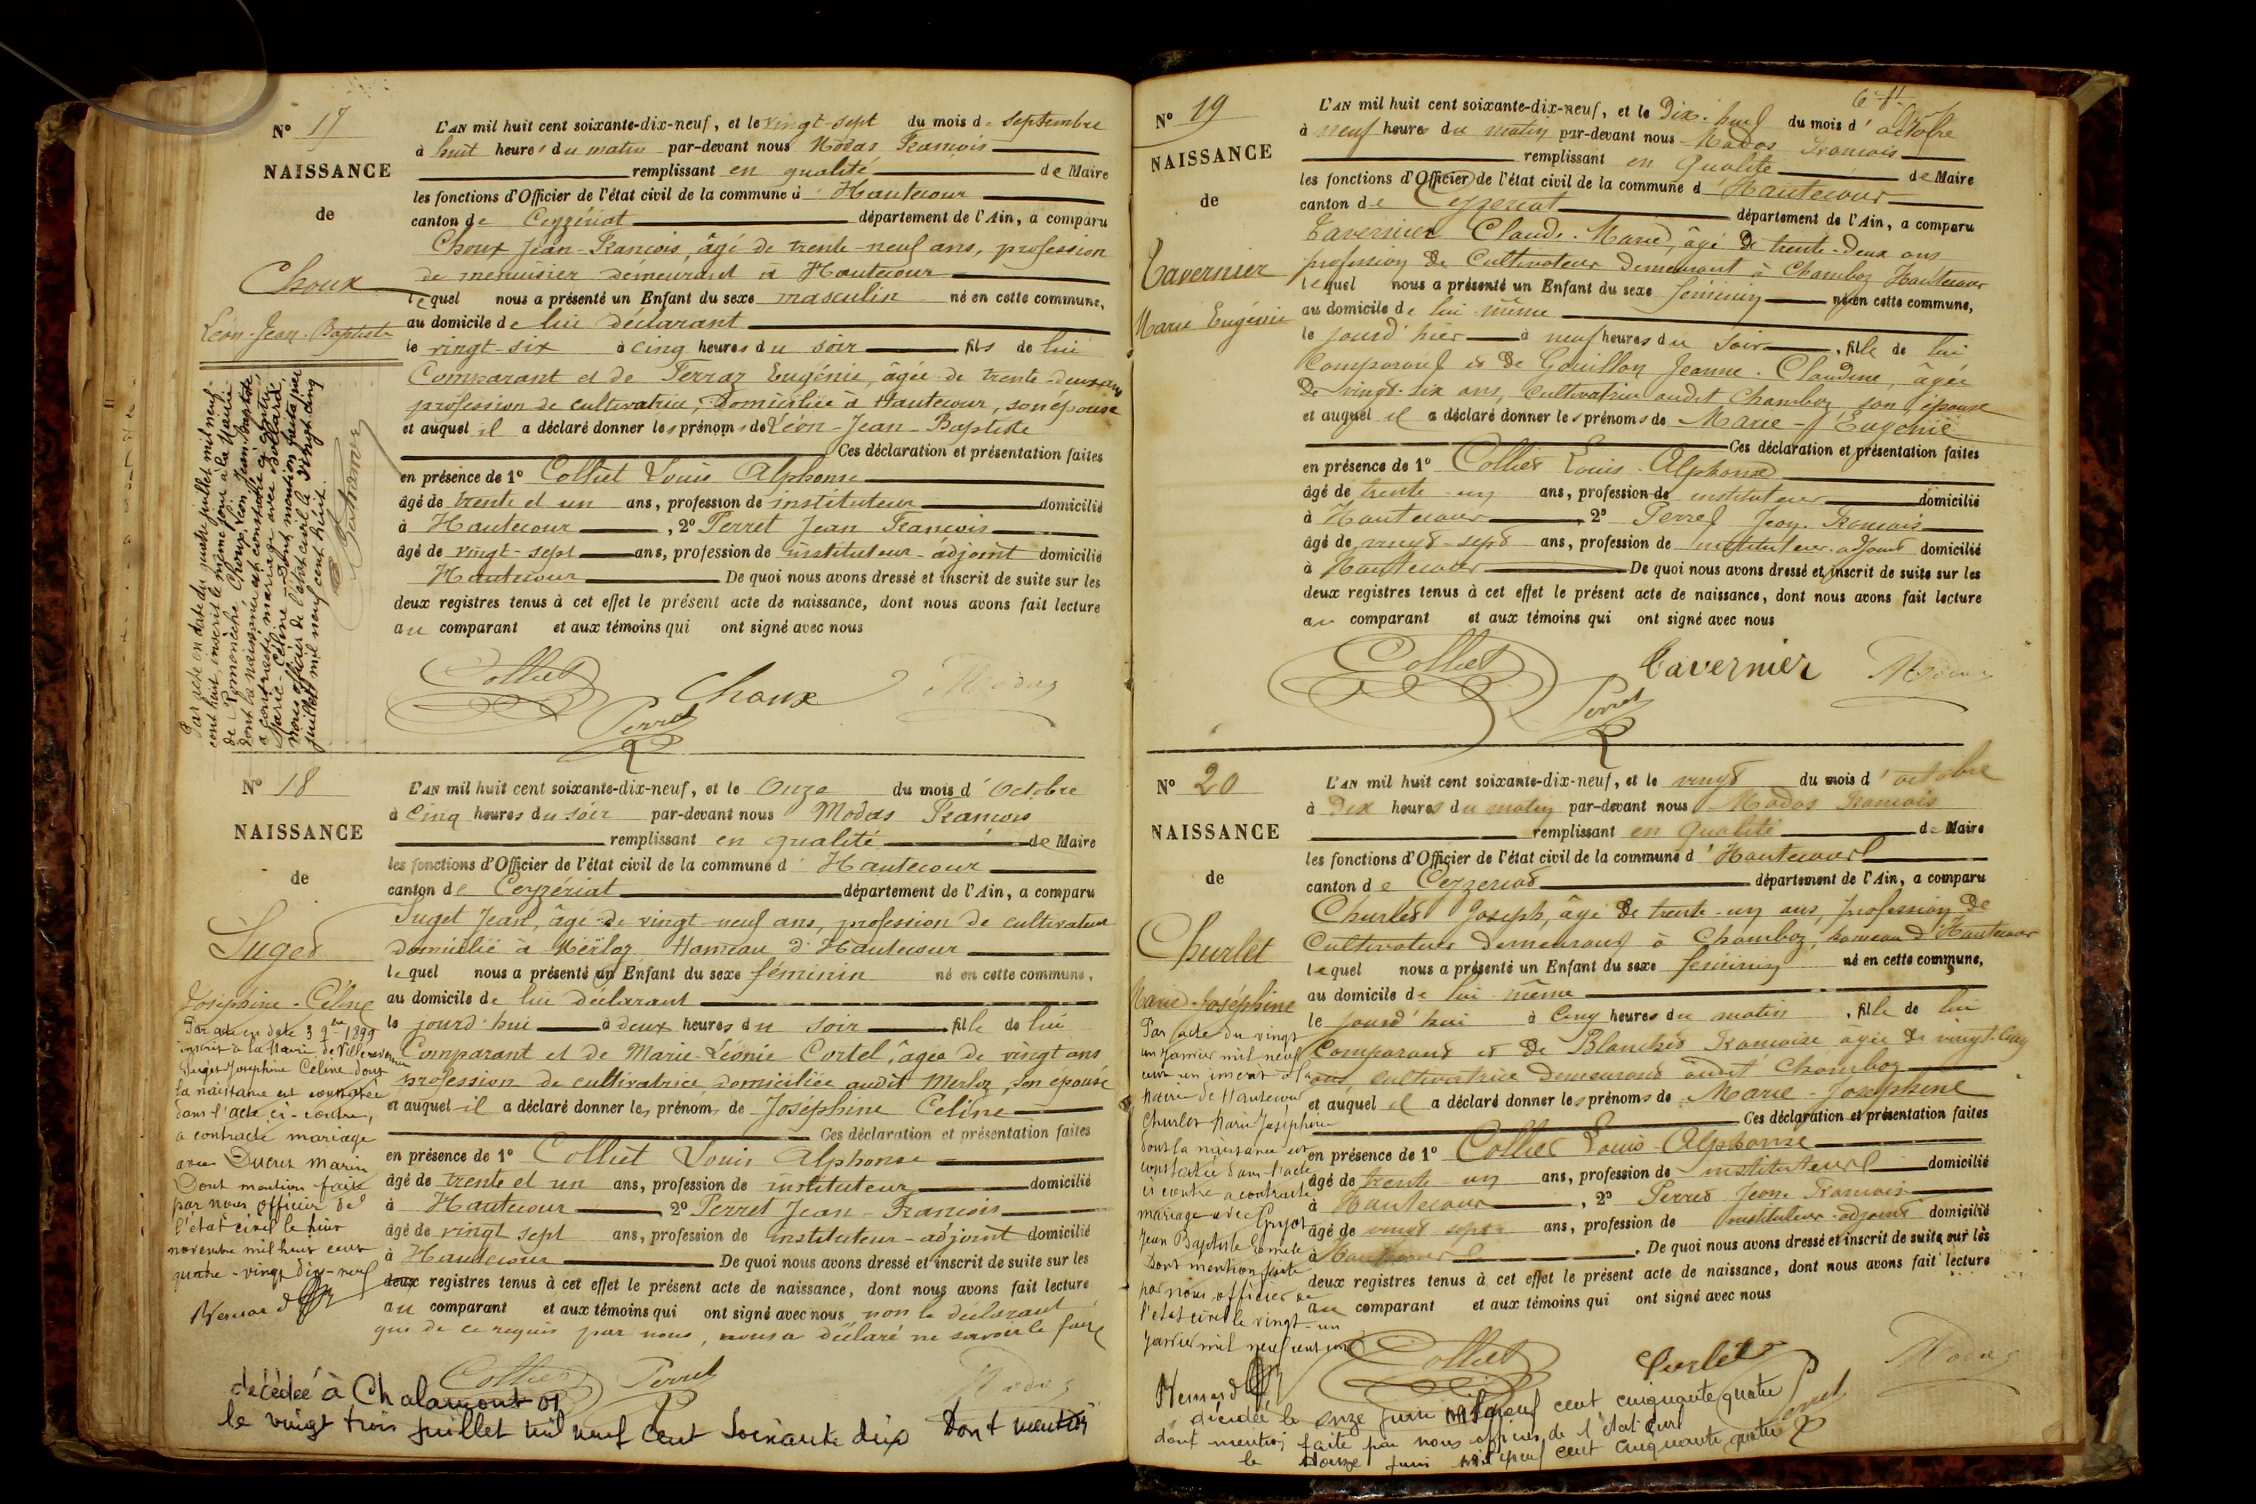 N° 17
NAISSANCE
de
Choux
Léon-Jean-Baptiste
L'AN mil huit cent soixante-dix-neuf, et le vingt-sept du mois de septembre
à huit heures du matin par-devant nous Modas François
remplissant en qualité de Maire
les fonctions d'Officier de l'état civil de la commune d' Hautecour
canton de Ceyzériat département de l'Ain, a comparu
Choux Jean-François, âgé de trente-neuf ans, profession
de menuisier demeurant à Hautecour
lequel nous a présenté un Enfant du sexe masculin né en cette commune,
au domicile de lui déclarant
le vingt-six à cinq heures du soir fils de lui
Comparant et de Perraz Eugénie, âgée de trente-deux ans
profession de cultivatrice, domiciliée à Hautecour, son épouse
et auquel il a déclaré donner les prénoms de Léon-Jean-Baptiste
Ces déclaration et présentation faites
en présence de 1° Colliet Louis Alphonse
âgé de trente et un ans, profession de instituteur domicilié
à Hautecour, 2° Perret Jean François
âgé de vingt-sept ans, profession de instituteur-adjoint domicilié
Hautecour De quoi nous avons dressé et inscrit de suite sur les
deux registres tenus à cet effet le présent acte de naissance, dont nous avons fait lecture
au comparant et aux témoins qui ont signé avec nous
Colliet Choux Modas
Perret
Par acte en date du quatre juillet mil neuf
cent huit, inscrit le même jour à la Mairie
de Romanèche, Choux Léon Jean-Baptiste
dont la naissance est constatée ci-contre,
a contracté mariage avec Bollard
Marie-Céline - Dont mention faite par
nous officier de l'état civil le vingt cinq
juillet mil neuf cent huit.
N° 18
NAISSANCE
de
Suget
Joséphine-Céline
L'AN mil huit cent soixante-dix-neuf, et le Onze du mois d'Octobre
à Cinq heures du soir par-devant nous Modas François
remplissant en qualité de Maire
les fonctions d'Officier de l'état civil de la commune d' Hautecour
canton de Ceyzériat département de l'Ain, a comparu
Suget Jean, âgé de vingt-neuf ans, profession de cultivateur
domicilié à Merloz, Hameau d'Hautecour
lequel nous a présenté un Enfant du sexe féminin né en cette commune,
au domicile de lui déclarant
le jourd'hui à deux heures du soir fille de lui
Comparant et de Marie-Léonie Cortel, âgée de vingt ans
profession de cultivatrice domiciliée audit Merloz, son épouse
et auquel il a déclaré donner les prénoms de Joséphine Céline
Ces déclaration et présentation faites
en présence de 1° Colliet Louis Alphonse
âgé de trente et un ans, profession de instituteur domicilié
à Hautecour 2° Perret Jean-François
âgé de vingt sept ans, profession de instituteur-adjoint domicilié
à Hautecour De quoi nous avons dressé et inscrit de suite sur les
deux registres tenus à cet effet le présent acte de naissance, dont nous avons fait lecture
au comparant et aux témoins qui ont signé avec nous, non le déclarant
que de ce requis par nous, nous a déclaré ne savoir le faire
Colliet Perret Modas
Par acte en date 3 9bre 1899
inscrit à la Mairie de Villereversure
Suget Joséphine Céline dont
la naissance est constatée
dans l'acte ci-contre,
a contracté mariage
avec Ducret Marin
Dont mention faite
par nous, officier de
l'état civil le huit
novembre mil huit cent
quatre-vingt dix-neuf
Bernard
décédée à Chalamont 01
le vingt trois juillet mil neuf cent soixante dix Dont mention
N° 19
NAISSANCE
de
Tavernier
Marie Eugénie
L'AN mil huit cent soixante-dix-neuf, et le Dix-huit du mois d'octobre
à neuf heures du matin par-devant nous Modas François
remplissant en qualité de Maire
les fonctions d'Officier de l'état civil de la commune d' Hautecour
canton de Ceyzeriat département de l'Ain, a comparu
Tavernier Claude-Marie, âgé de trente-deux ans
profession de cultivateur demeurant à Chamboz Hautecour
lequel nous a présenté un Enfant du sexe féminin né en cette commune,
au domicile de lui même
le jourd'hier à neuf heures du soir, fille de lui
Comparant et de Gouillon Jeanne-Claudine, âgée
de vingt-six ans, cultivatrice audit Chamboz son épouse
et auquel il a déclaré donner les prénoms de Marie-Eugénie
Ces déclaration et présentation faites
en présence de 1° Colliet Louis-Alphonse
âgé de trente-un ans, profession de instituteur domicilié
à Hautecour, 2° Perret Jean-François
âgé de vingt-sept ans, profession de instituteur-adjoint domicilié
à Hautecour De quoi nous avons dressé et inscrit de suite sur les
deux registres tenus à cet effet le présent acte de naissance, dont nous avons fait lecture
au comparant et aux témoins qui ont signé avec nous
Colliet Tavernier Modas
Perret
N° 20
NAISSANCE
de
Churlet
Marie-Joséphine
L'AN mil huit cent soixante-dix-neuf, et le vingt du mois d'octobre
à Dix heures du matin par-devant nous Modas François
remplissant en qualité de Maire
les fonctions d'Officier de l'état civil de la commune d' Hautecour
canton de Ceyzeriat département de l'Ain, a comparu
Churlet Joseph, âgé de trente-un ans, profession de
Cultivateur demeurant à Chamboz, hameau d'Hautecour
lequel nous a présenté un Enfant du sexe féminin né en cette commune,
au domicile de lui même
le jourd'hui à Cinq heures du matin, fille de lui
Comparant et de Blanchet Françoise âgée de vingt-cinq
ans, cultivatrice demeurant audit Chamboz
et auquel il a déclaré donner les prénoms de Marie-Joséphine
Ces déclaration et présentation faites
en présence de 1° Colliet Louis-Alphonse
âgé de trente-un ans, profession de instituteur domicilié
à Hautecour, 2° Perret Jean-François
âgé de vingt sept ans, profession de instituteur-adjoint domicilié
à Hautecour. De quoi nous avons dressé et inscrit de suite sur les
deux registres tenus à cet effet le présent acte de naissance, dont nous avons fait lecture
au comparant et aux témoins qui ont signé avec nous
Colliet Churlet Modas
Perret
Par acte du vingt
un Janvier mil neuf
cent un inscrit à la
Mairie de Hautecour
Churlet Marie Joséphine
dont la naissance est
constatée dans l'acte
ci contre a contracté
mariage avec Guyot
Jean Baptiste
Dont mention faite
par nous officier de
l'état civil le vingt-un
Janvier mil neuf cent un
Bernard
décédée le onze juin mil neuf cent cinquante quatre
dont mention faite par nous officier de l'état civil
le douze juin mil neuf cent cinquante quatre